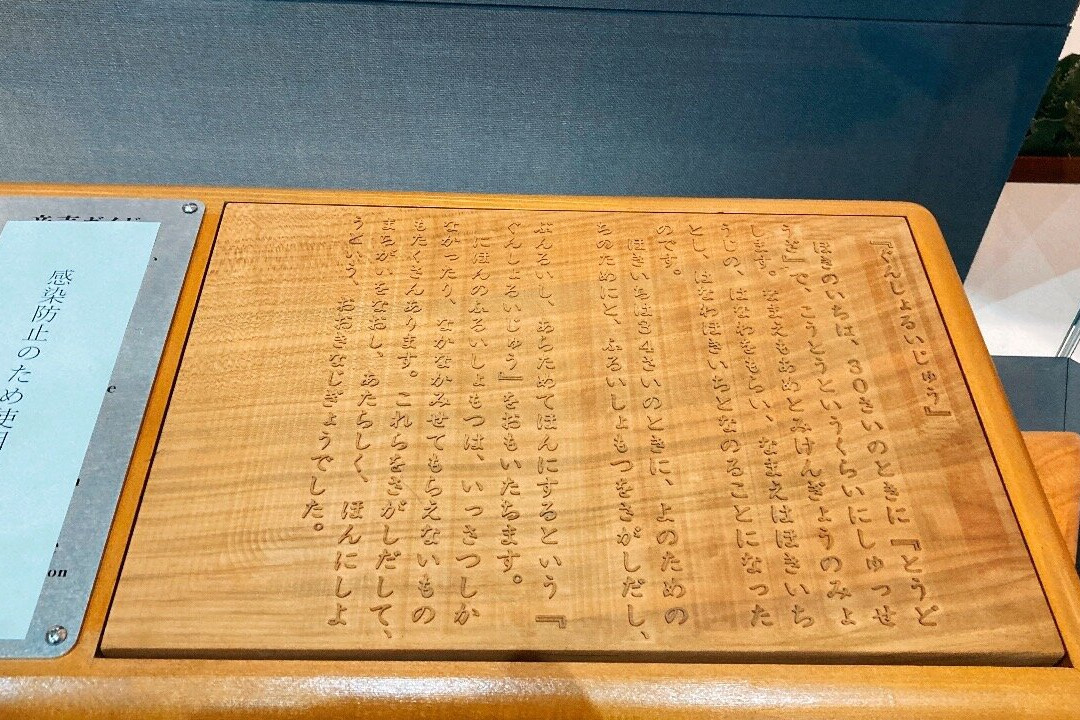 『ぐんしょるいじゅう』
ほきのいちは、30さいのときに『とうど
うざ』で、こうとうというくらいにしゅっせ
します。なまえもあめとみけんぎょうのみょ
うじの、はなわをもらい、なまえはほきいち
とし、はなわほきいちとなのることになった
のです。
ほきいちは34さいのときに、よのための
ちのためにと、ふるいしょもつをさがしだし、
ぶんるいし、あらためてほんにするという『
ぐんしょるいじゅう』をおもいたちます。
にほんのふるいしょもつは、いっさつしか
なかったり、なかなかみせてもらえないもの
もたくさんあります。これらをさがしだして、
まちがいをなおし、あたらしく、ほんにしよ
うという、おおきなじぎょうでした。
感染防止のため使用